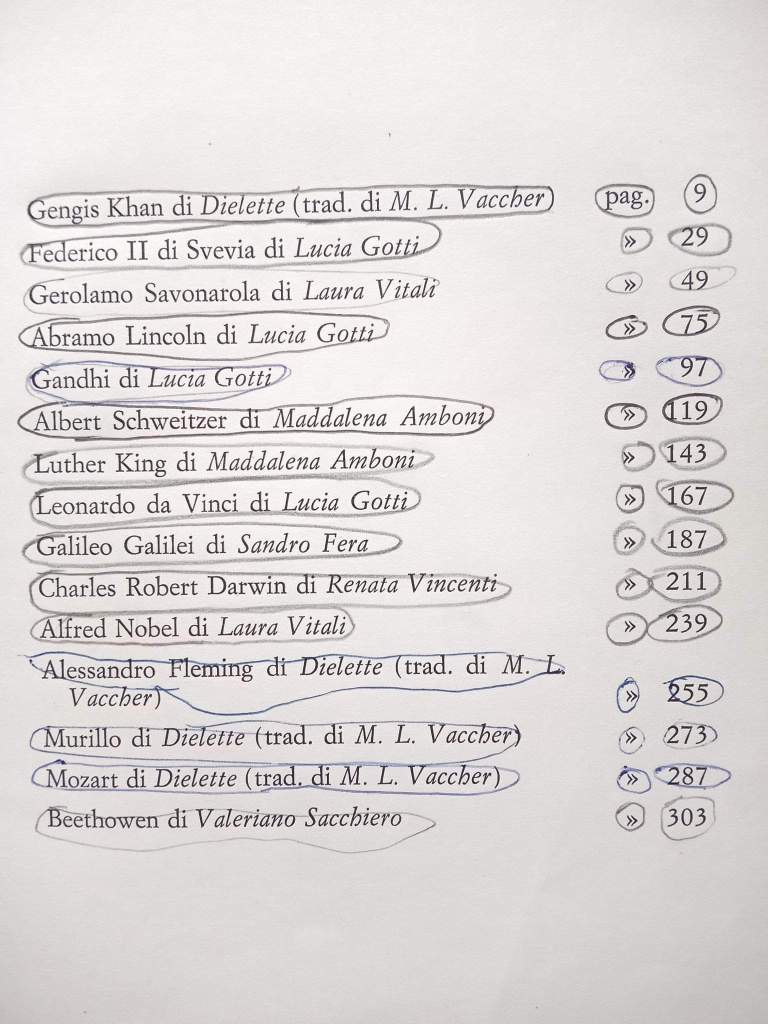 Gengis Khan di Dielette (trad. di M. L. Vaccher) pag. 9
Federico II di Svevia di Lucia Gotti » 29
Gerolamo Savonarola di Laura Vitali » 49
Abramo Lincoln di Lucia Gotti » 75
Gandhi di Lucia Gotti » 97
Albert Schweitzer di Maddalena Amboni » 119
Luther King di Maddalena Amboni » 143
Leonardo da Vinci di Lucia Gotti » 167
Galileo Galilei di Sandro Fera » 187
Charles Robert Darwin di Renata Vincenti » 211
Alfred Nobel di Laura Vitali » 239
Alessandro Fleming di Dielette (trad. di M. L.
Vaccher) » 255
Murillo di Dielette (trad. di M. L. Vaccher) » 273
Mozart di Dielette (trad. di M. L. Vaccher) » 287
Beethowen di Valeriano Sacchiero » 303